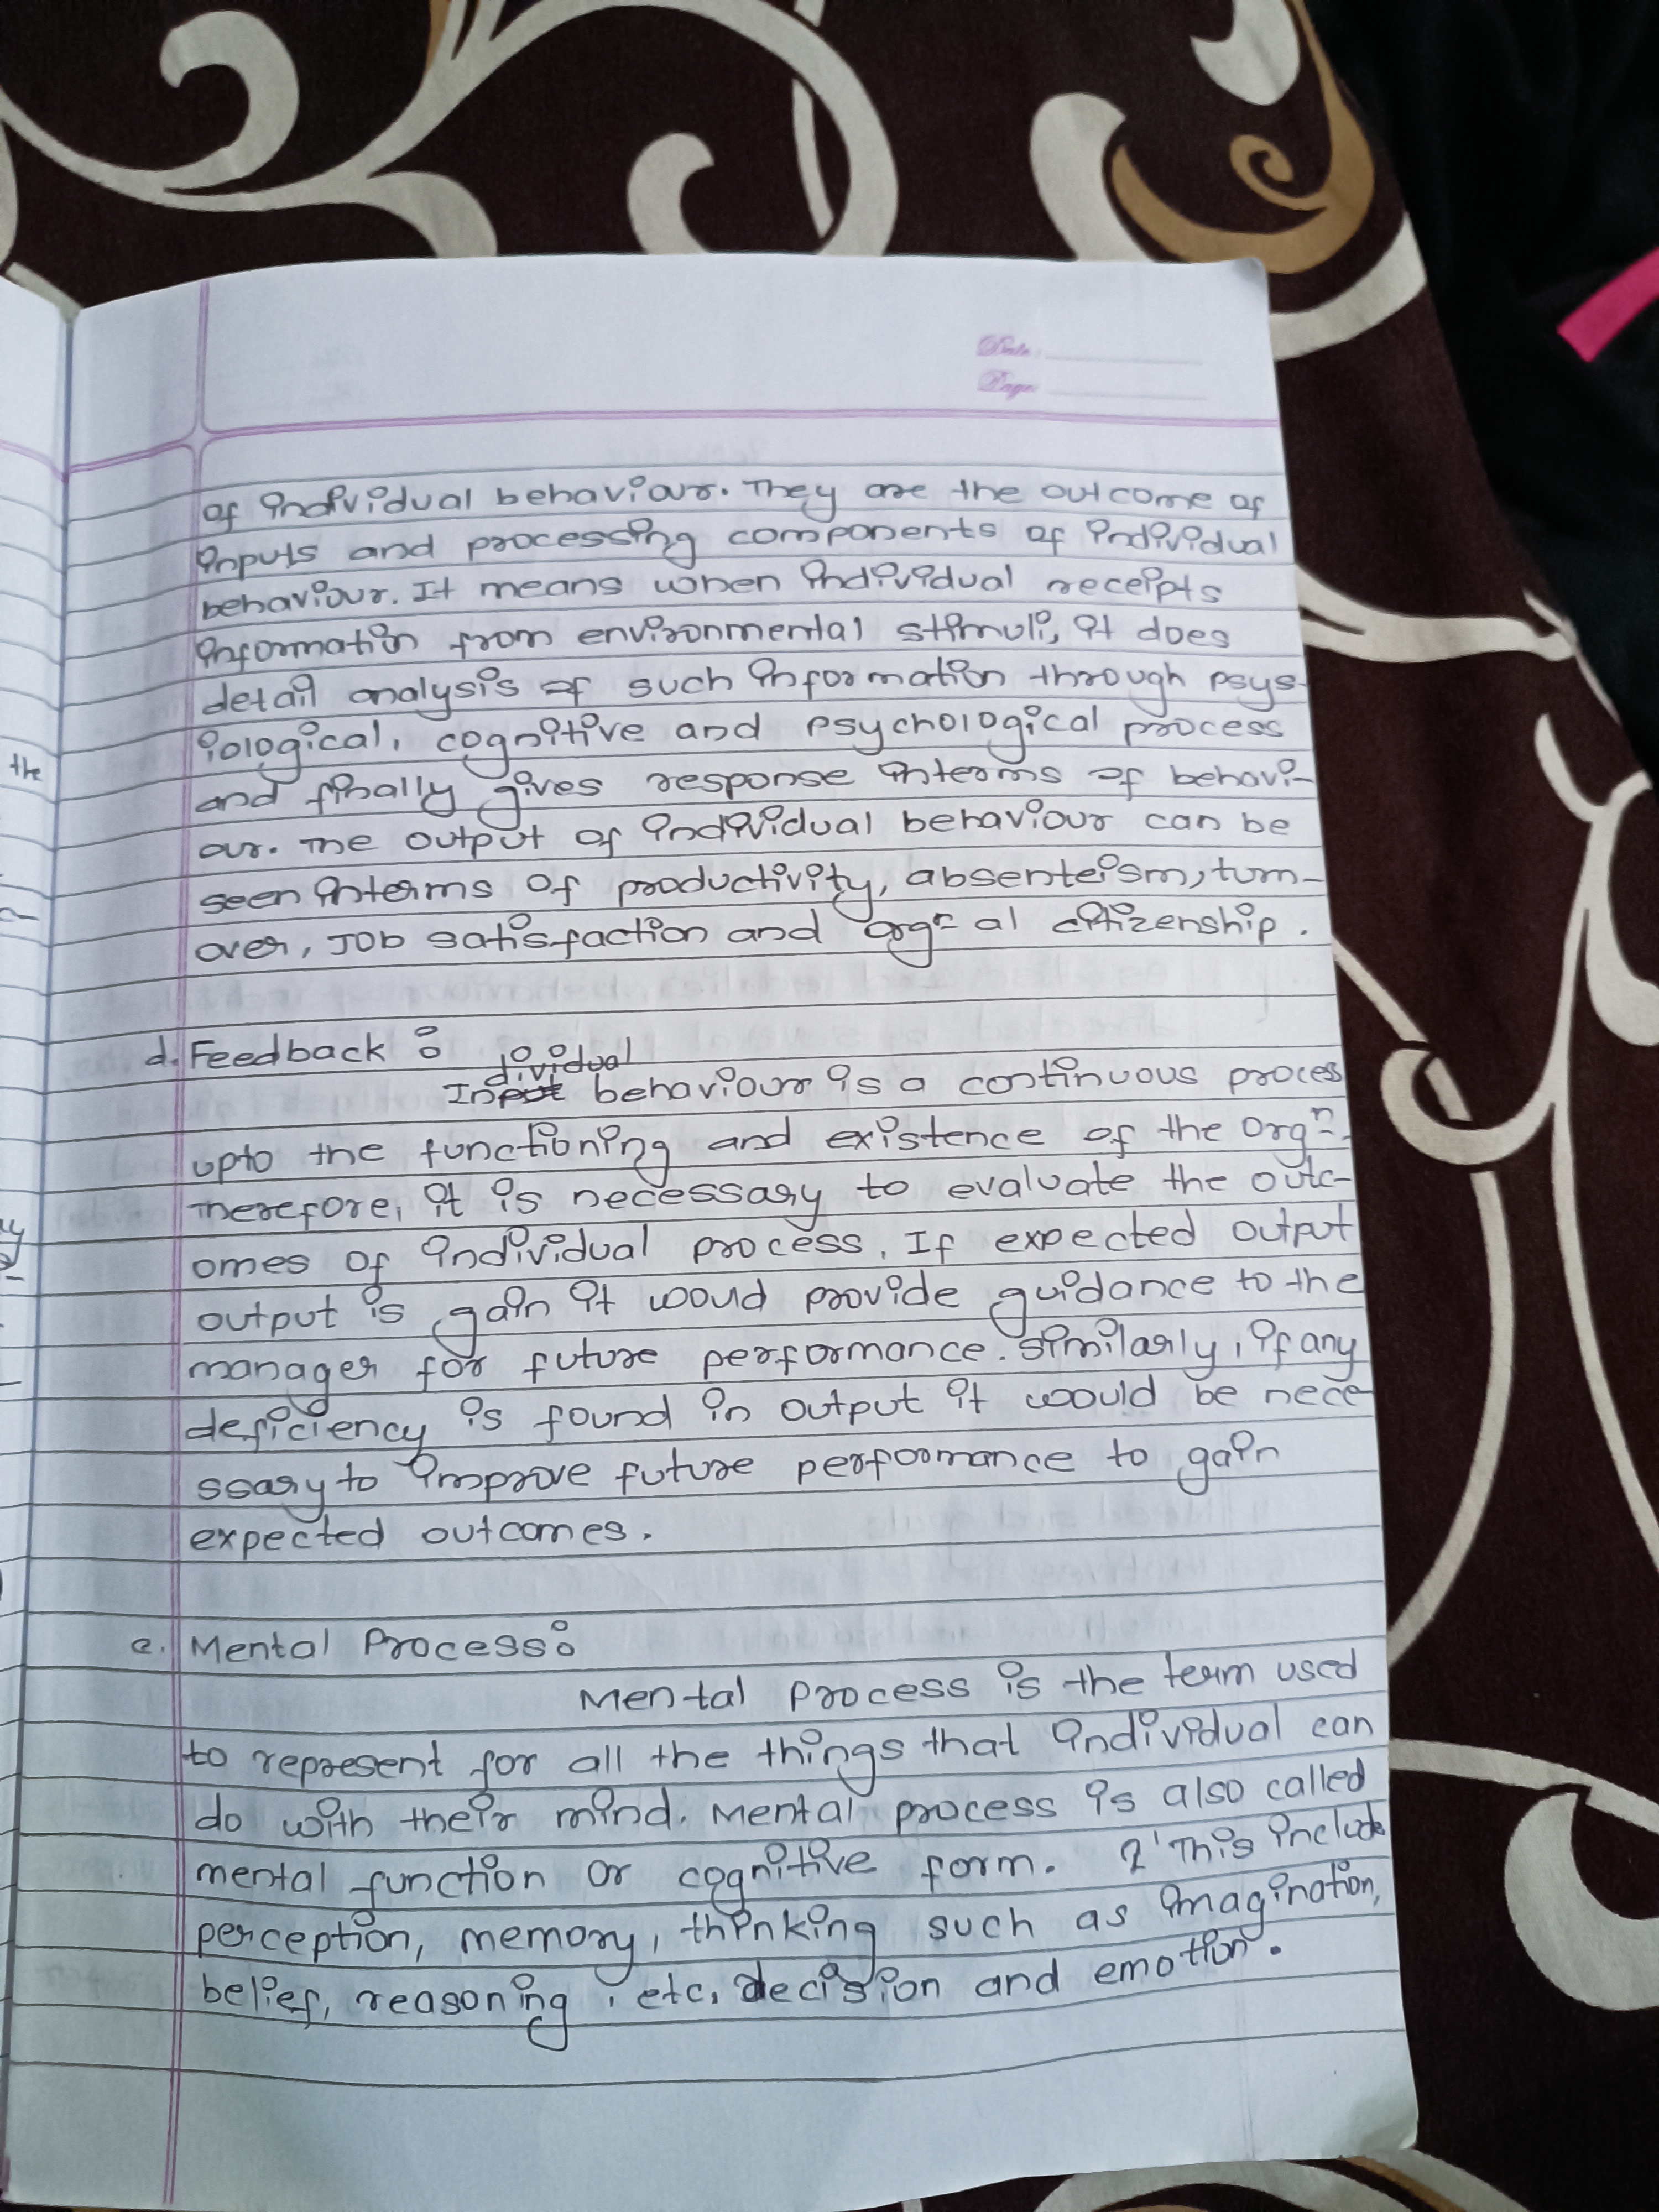 Date
Page
of individual behaviour. They are the outcome of
inputs and processing components of individual
behaviour. It means when individual receipts
information from environmental stimuli, it does
detail analysis of such information through psys-
iological, cognitive and psychological process
and finally gives response interms of behavi-
our. The output of individual behaviour can be
seen interms of productivity, absenteism, turn-
over, Job satisfaction and orgⁿal citizenship.
the
d. Feedback :
Individual behaviour is a continuous proces
upto the functioning and existence of the orgⁿ.
Therefore, it is necessary to evaluate the outc-
omes of individual process. If expected output
output is gain it would provide guidance to the
manager for future performance. Similarly, if any
deficiency is found in output it would be nece
ssary to improve future performance to gain
expected outcomes.
e. Mental Process:
Mental Process is the term used
to represent for all the things that individual can
do with their mind. Mental process is also called
mental function or cognitive form. This include
perception, memory, thinking such as imagination,
belief, reasoning, etc, decision and emotion.